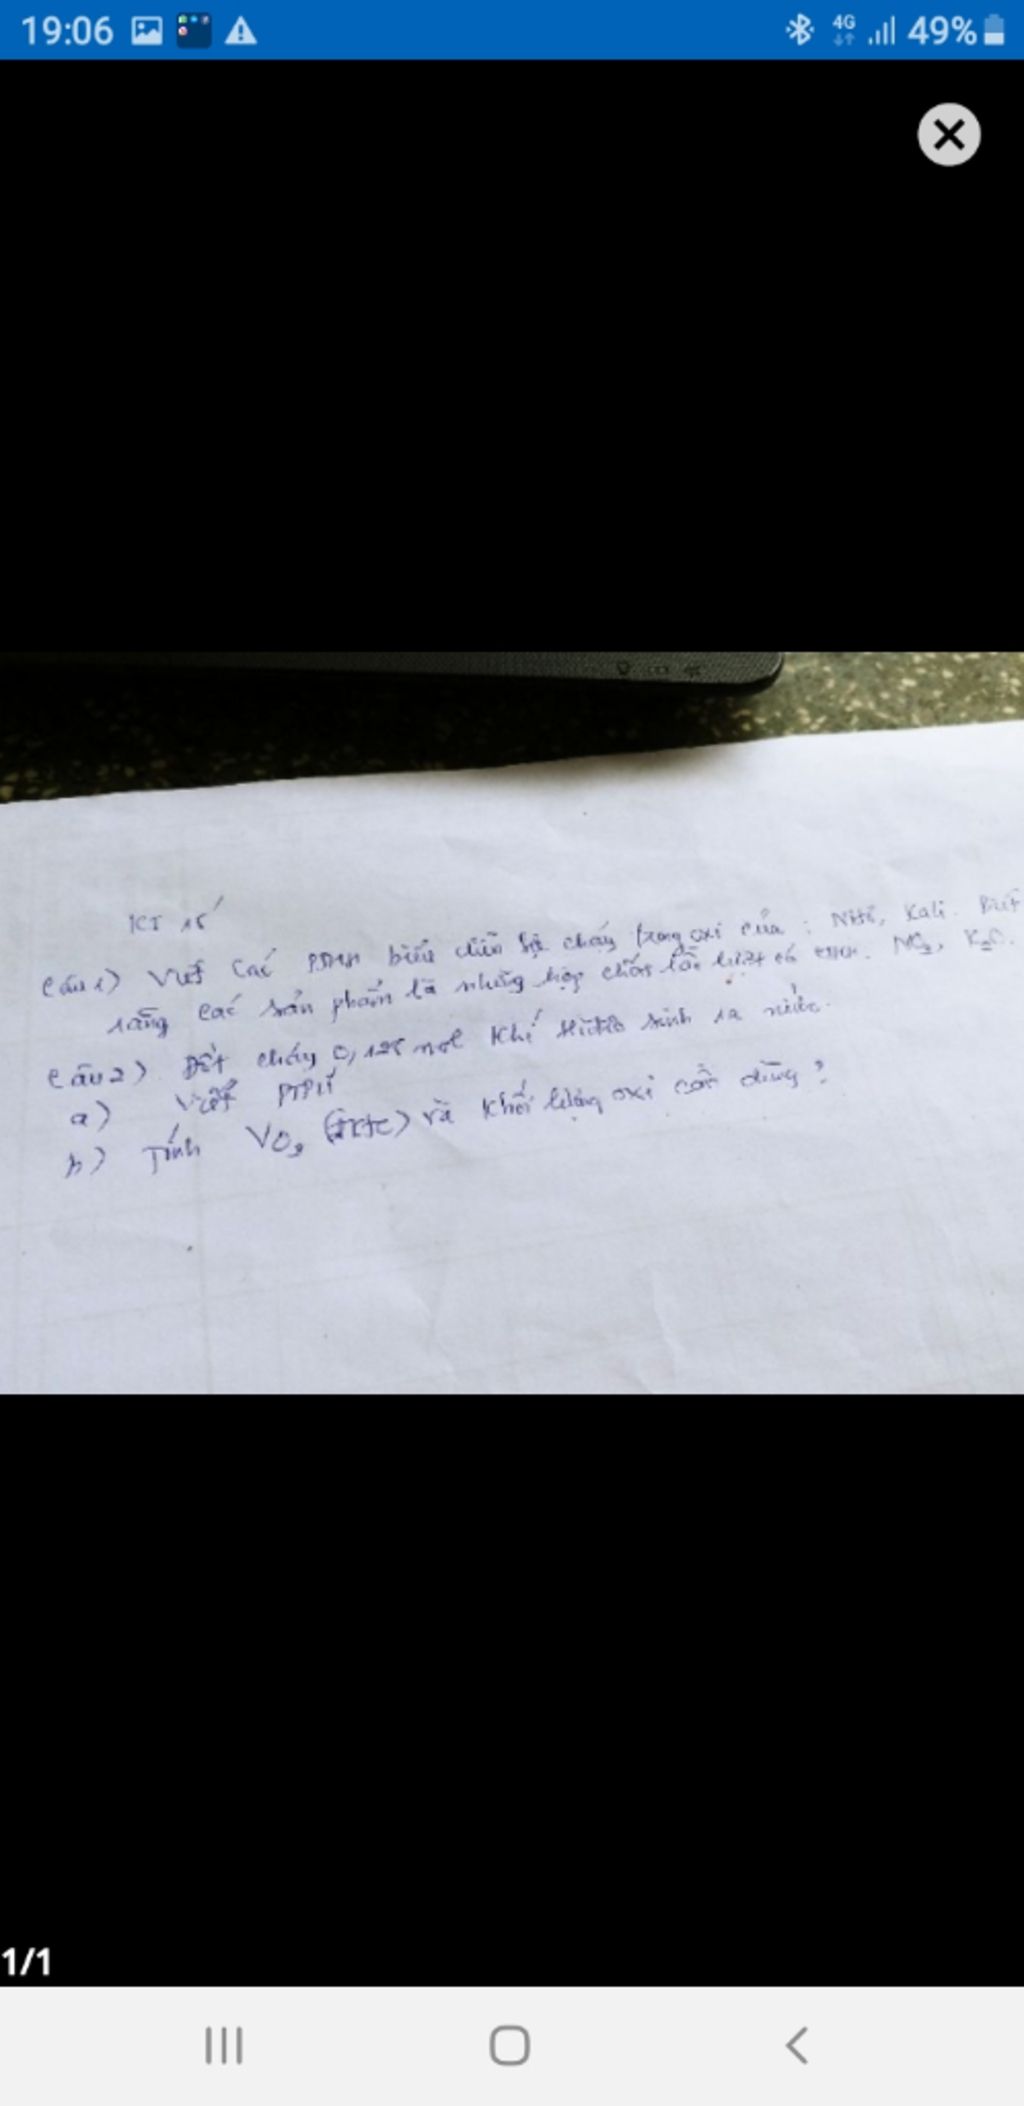 19:06
4G
49%
KT 15'
Câu 1) Viết các PTHH biểu diễn sự cháy trong oxi của : Kali. Biết
rằng các sản phẩm là những hợp chất lần lượt có CTHH. NO2, K2O.
Câu 2) Đốt cháy 0,125 mol khí Hiđro sinh ra nước.
a) Viết PTPƯ
b) Tính VO2 (đktc) và khối lượng oxi cần dùng ?
1/1